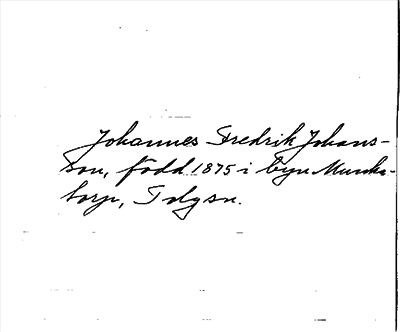 Johannes Fredrik Johans-
son, född 1875 i byn Munka-
torp, Tolgsn.